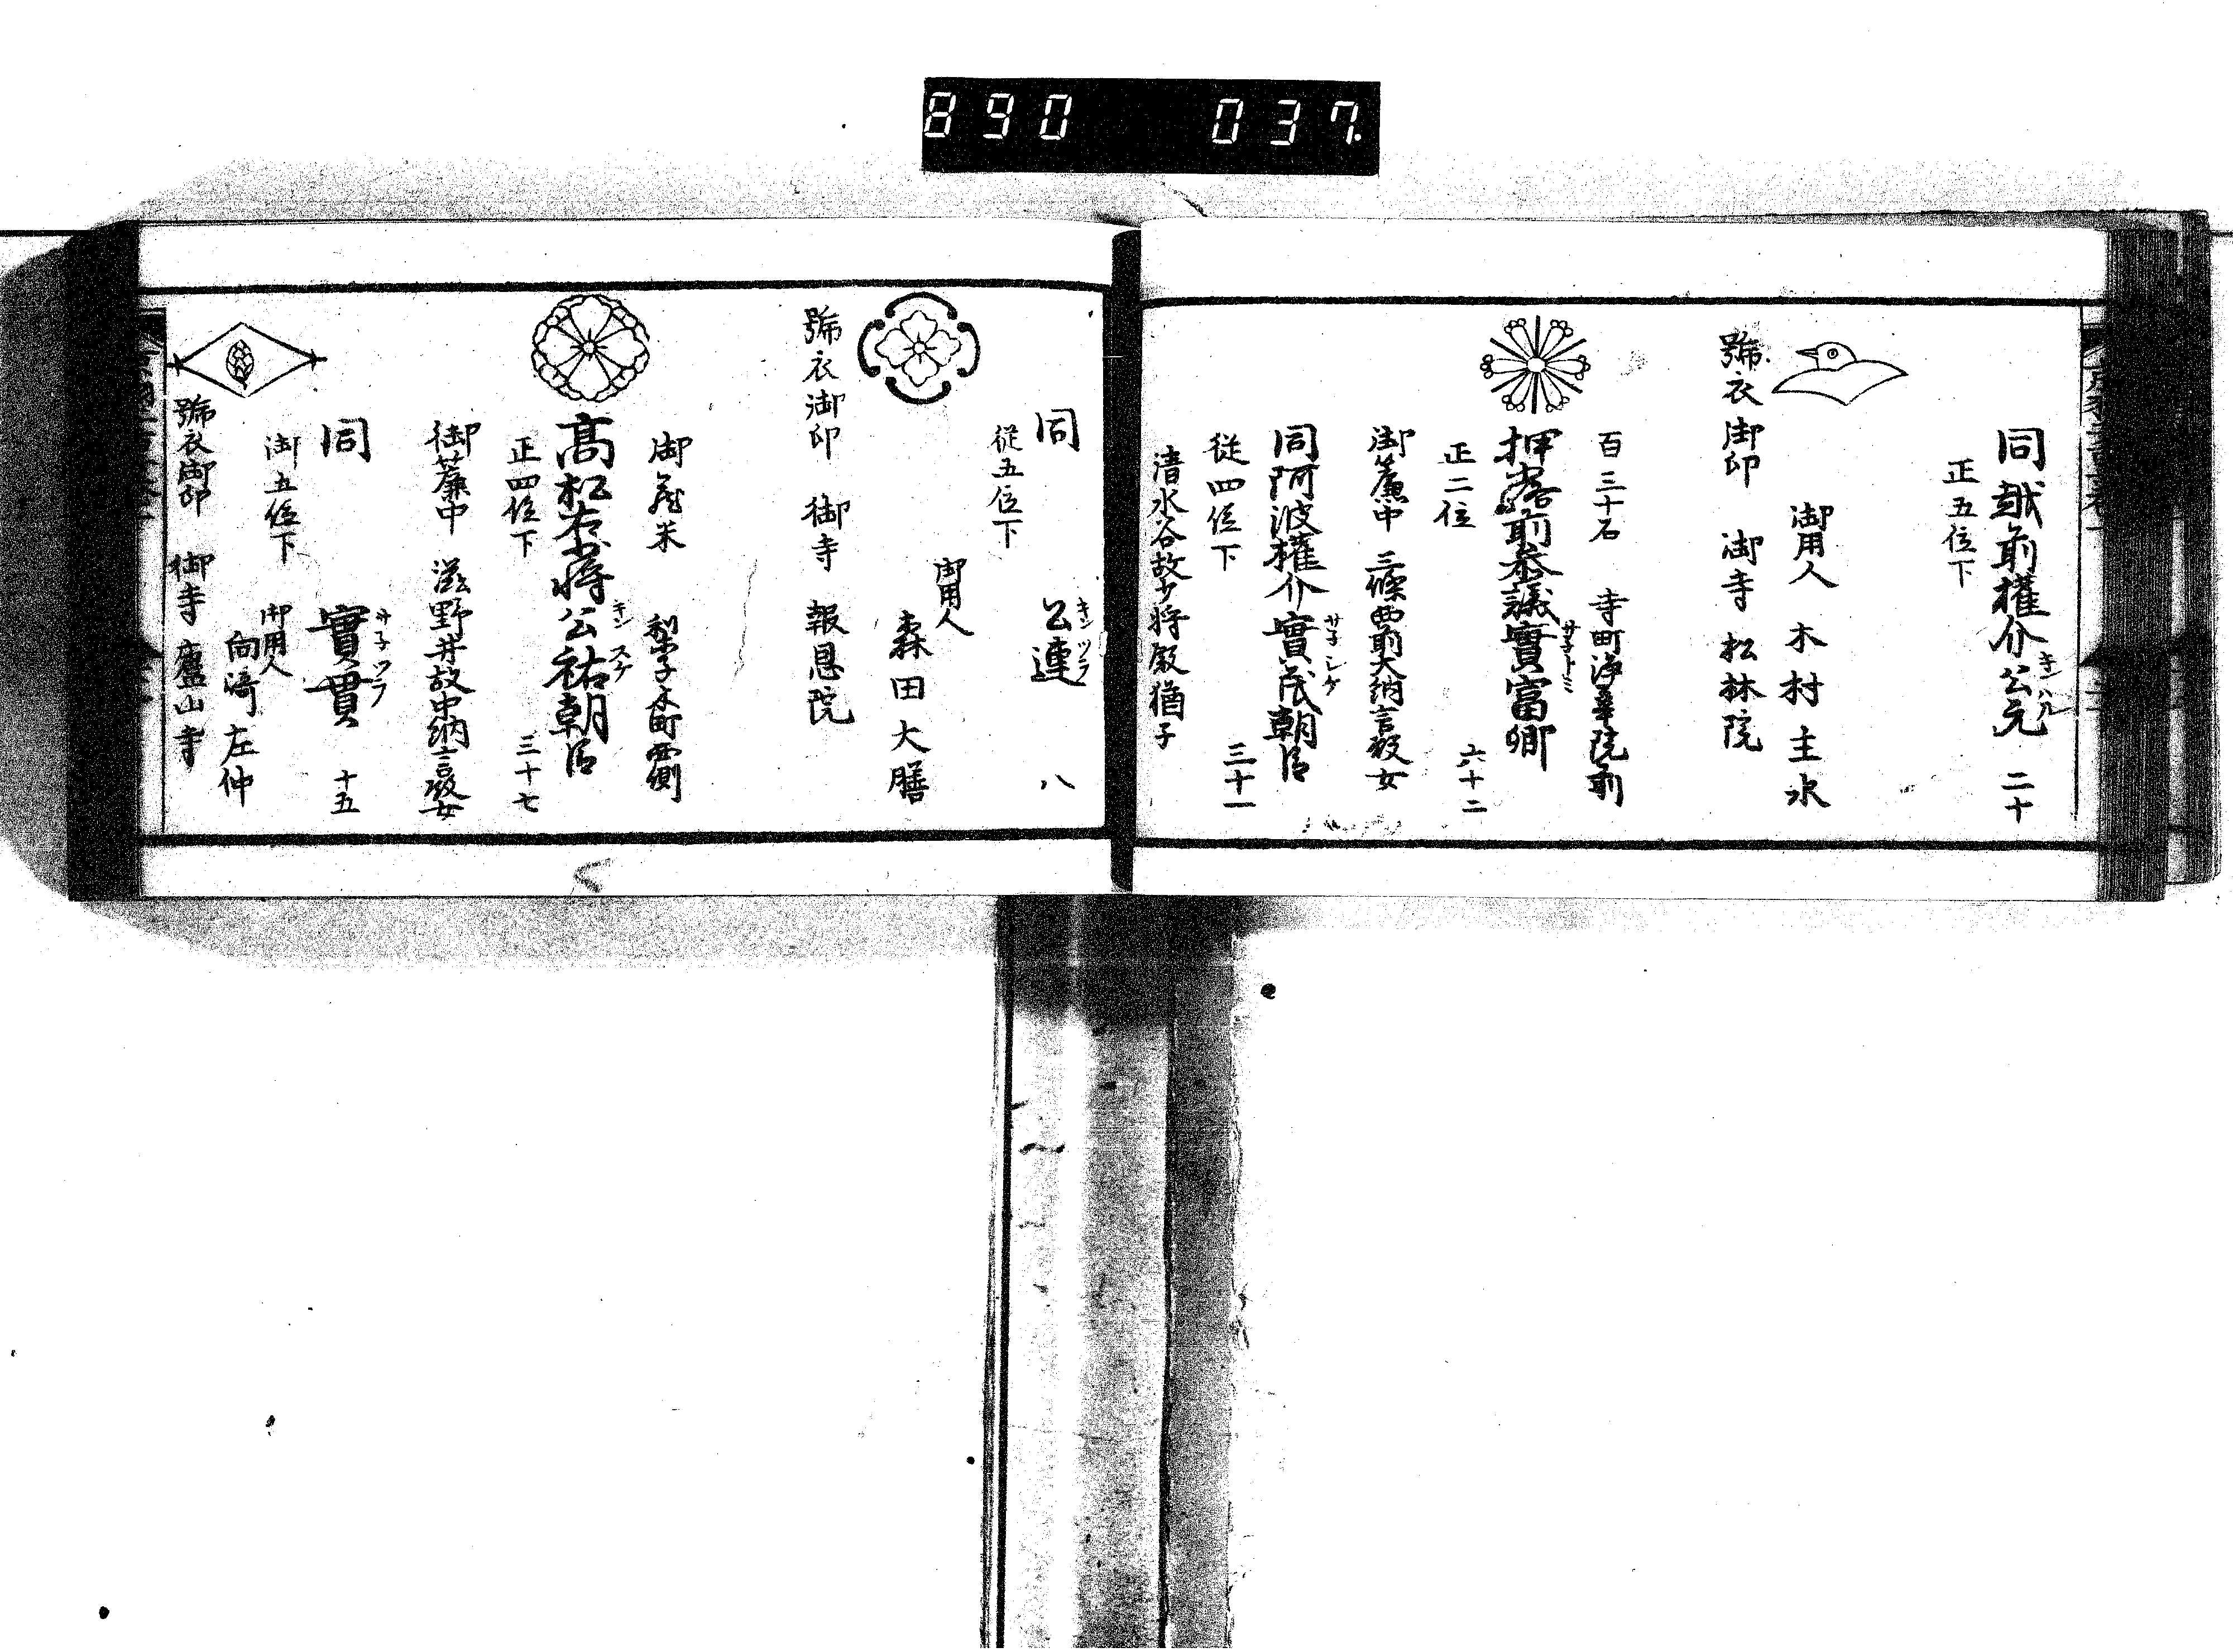 890 037.
同越前權介公允 二十
キンハル
正五位下
御用人 木村主水
號衣御印 御寺 松林院
百三十石 寺町浄華院前
押小路前参議實富卿
サネトミ
正二位 六十二
御簾中 三條西前大納言殿女
同阿波權介實茂朝臣
サネシケ
從四位下 三十一
清水谷故少将殿猶子
同 公連 八
キンツラ
從五位下
御用人
森田大膳
號衣御印 御寺 報恩院
御蔵米 梨子木町西側
髙松右少将公祐朝臣
キンスケ
正四位下 三十七
御簾中 滋野井故中納言殿女
同 實貫 十五
サネツラ
御五位下
御用人
向﨑左仲
號衣御印 御寺 廬山寺